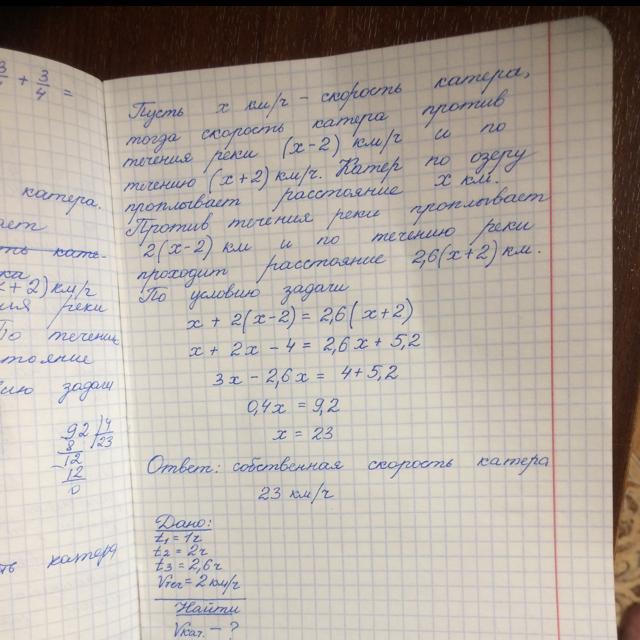 3/4 =
катера.
ть кате-
х+2) км/ч
реки
По течению
задачи
92 | 4
8 23
12
12
0
катера
Пусть x км/ч - скорость катера,
тогда скорость катера против
течения реки (x-2) км/ч и по
течению (x+2) км/ч. Катер по озеру
проплывает расстояние x км.
Против течения реки проплывает
2(x-2) км и по течению реки
проходит расстояние 2,6(x+2) км.
По условию задачи
x + 2(x-2) = 2,6(x+2)
x + 2x - 4 = 2,6x + 5,2
3x - 2,6x = 4+5,2
0,4x = 9,2
x = 23
Ответ: собственная скорость катера
23 км/ч
Дано:
t1 = 1ч
t2 = 2ч
t3 = 2,6ч
Vтеч = 2 км/ч
Найти
Vкат. - ?